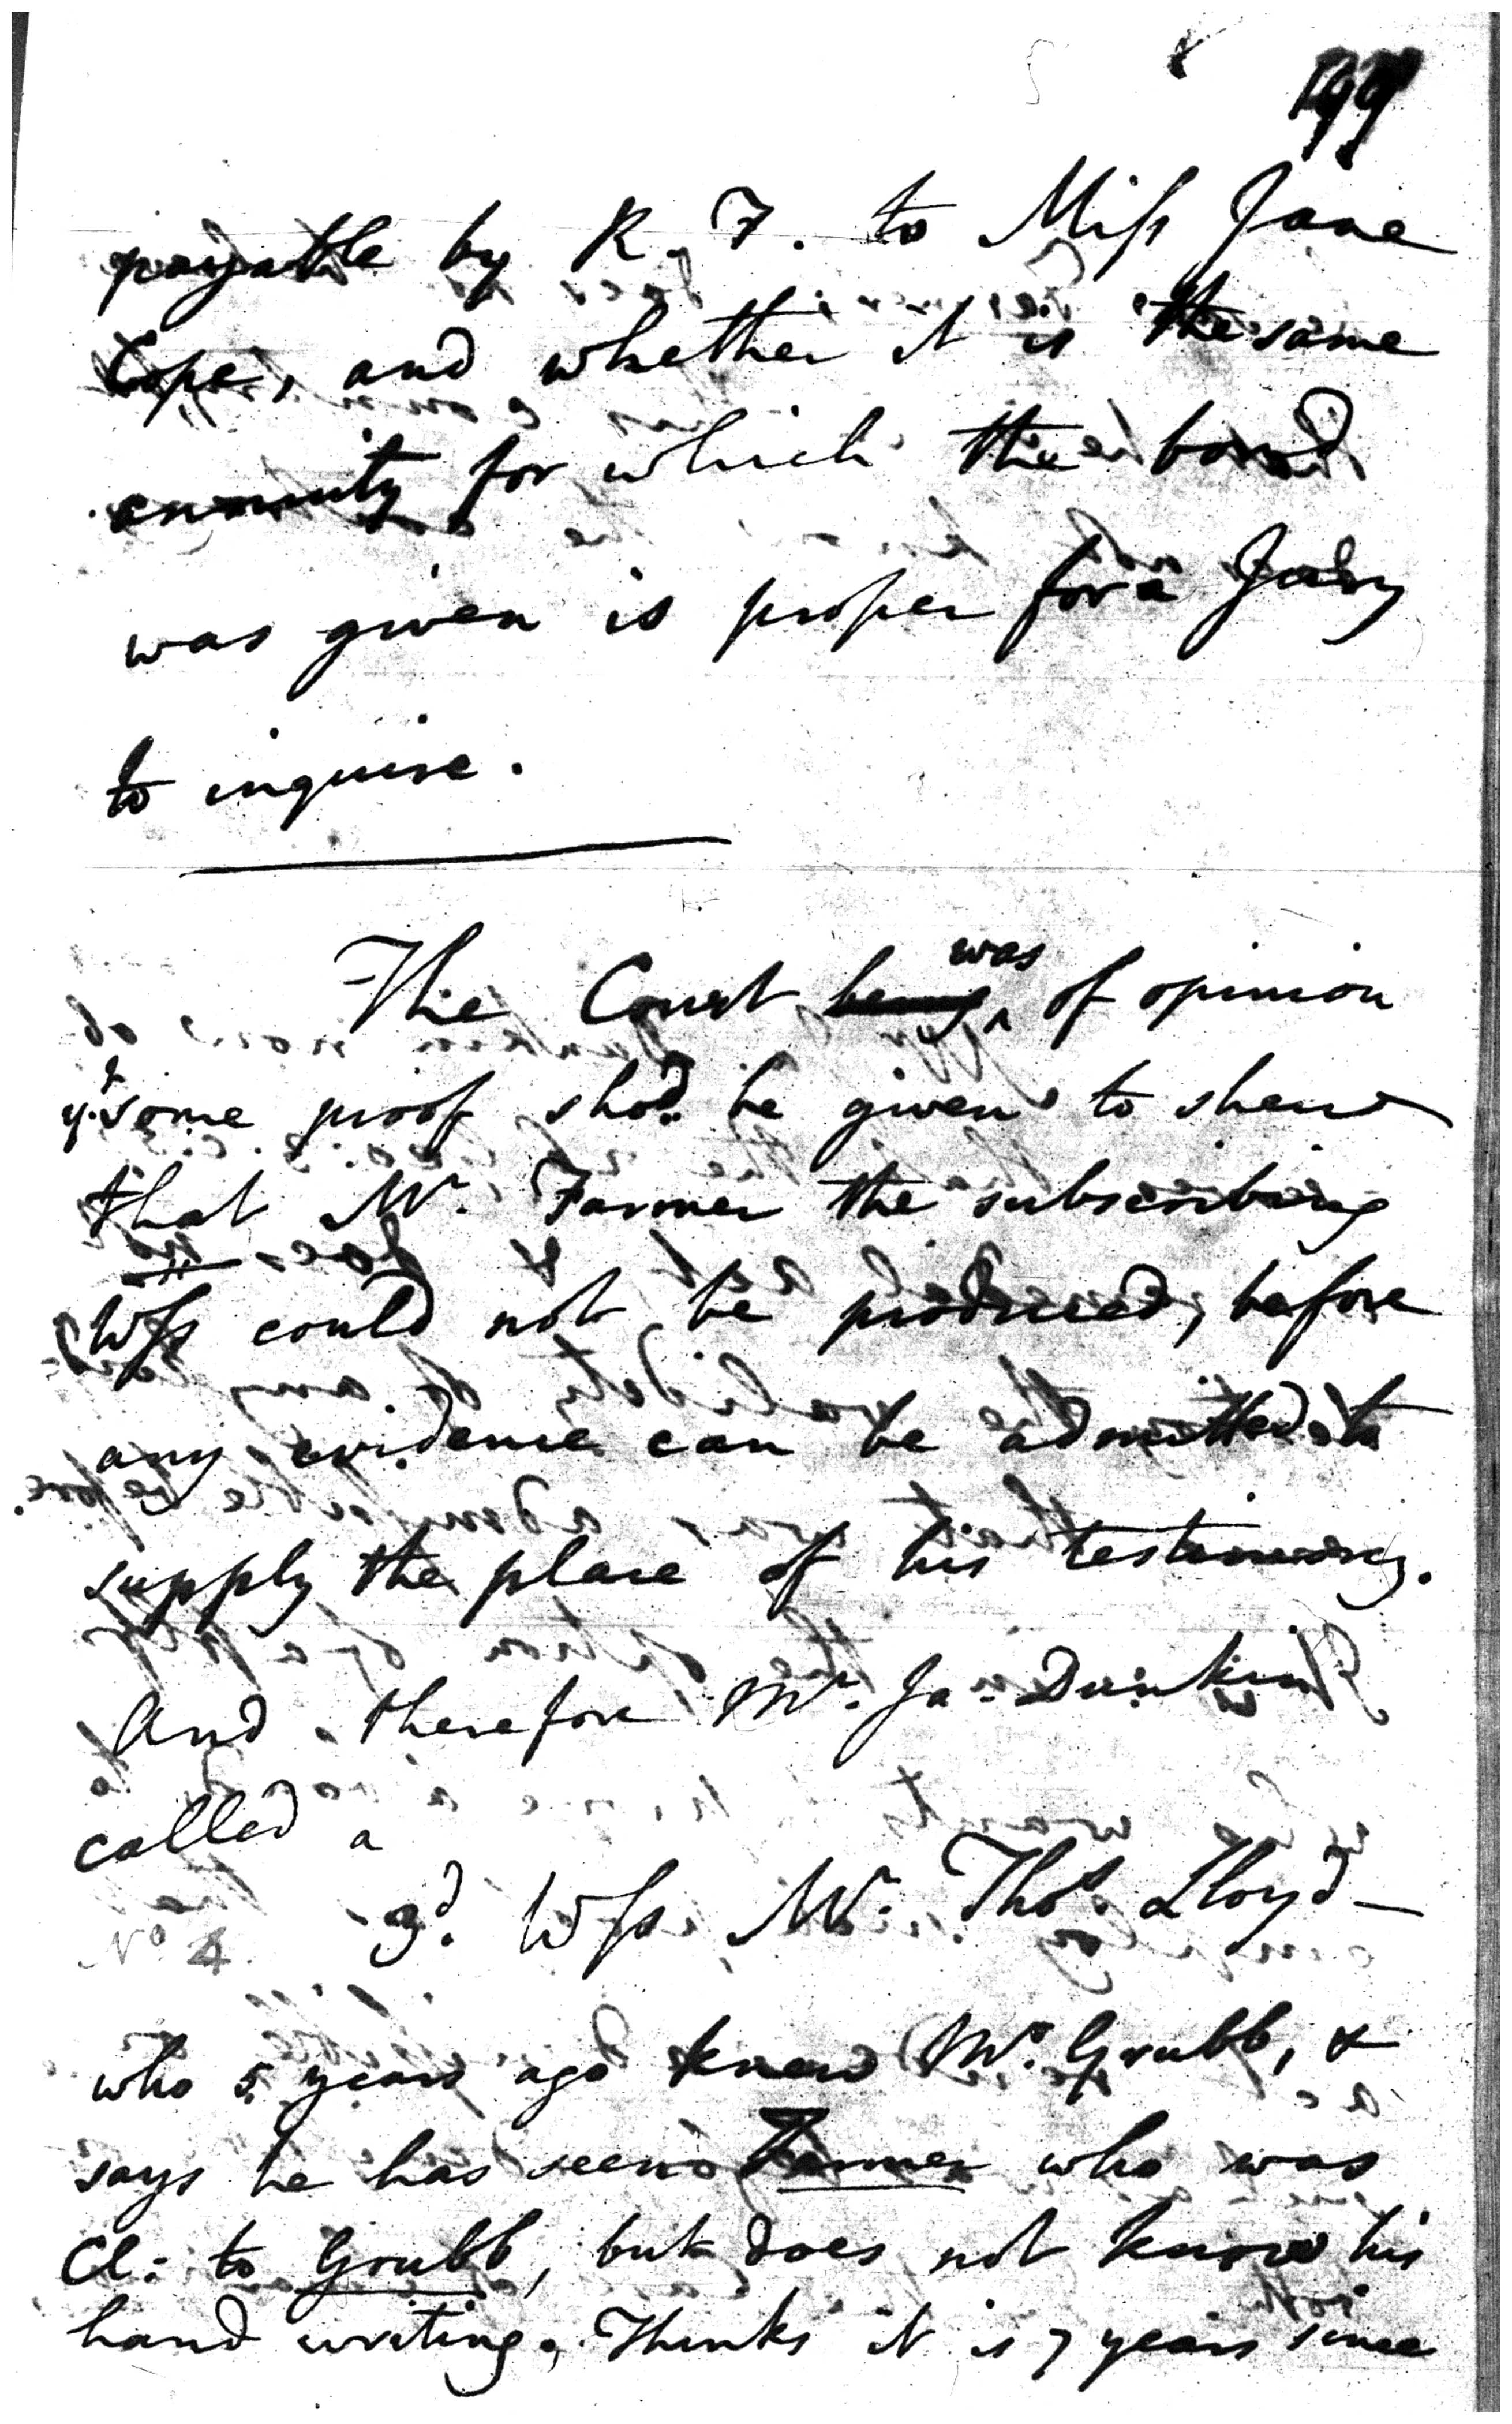 199
payable by R. F. to Miss Jane
Cope, and whether it is the same
annuity for which the bond
was given is proper for a Jury
to inquire.
The Court being was of opinion
yt. some proof shod. be given to shew
that Mr. Farmer the subscribing
Wss could not be produced, before
any evidence can be admitted to
supply the place of his testimony.
And therefore Mr. Ja. Dunkin
called a
3d. Wss Mr. Thos. Lloyd —
No 4.
who 5 years ago knew Mr. Grubb, &
says he has seen Farmer who was
Cl: to Grubb, but does not know his
hand writing. Thinks it is 7 years since